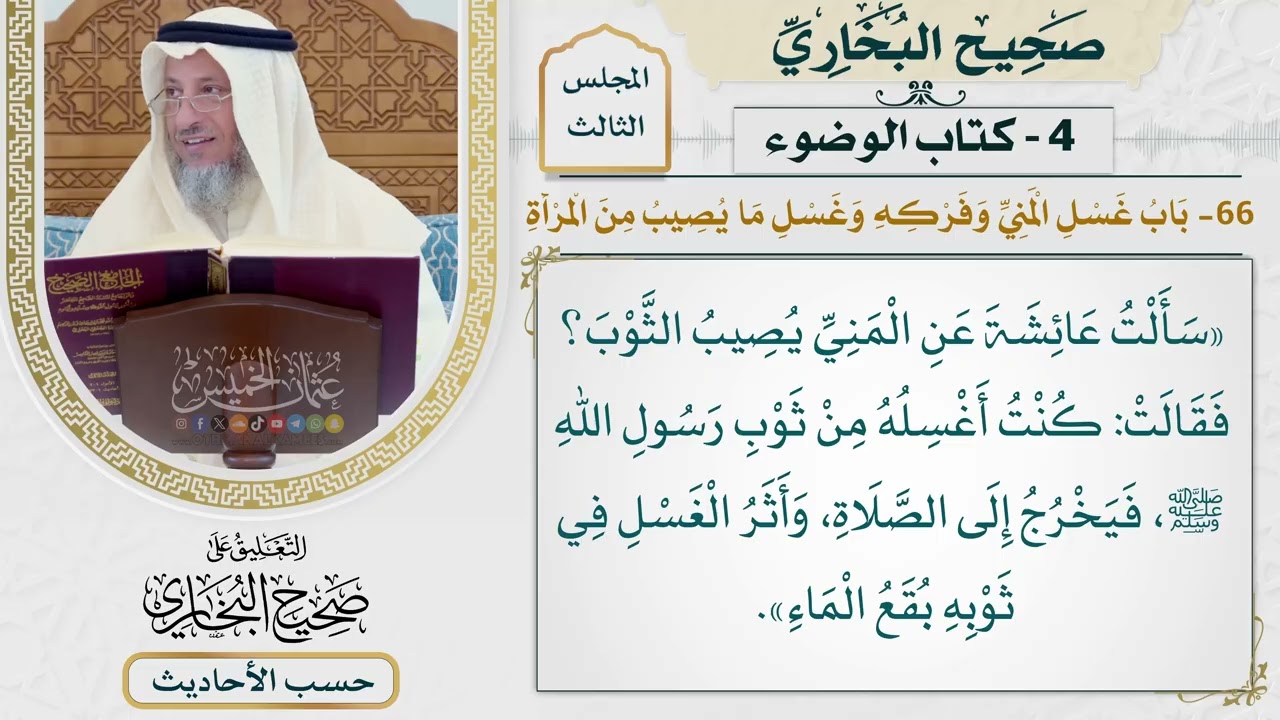 صَحِيح البُخَارِيِّ
المجلس
الثالث
4 - كتاب الوضوء
66- بَابُ غَسْلِ الْمَنِيِّ وَفَرْكِهِ وَغَسْلِ مَا يُصِيبُ مِنَ الْمَرْأَةِ
«سَأَلْتُ عَائِشَةَ عَنِ الْمَنِيِّ يُصِيبُ الثَّوْبَ؟
فَقَالَتْ: كُنْتُ أَغْسِلُهُ مِنْ ثَوْبِ رَسُولِ اللهِ
ﷺ، فَيَخْرُجُ إِلَى الصَّلَاةِ، وَأَثَرُ الْغَسْلِ فِي
ثَوْبِهِ بُقَعُ الْمَاءِ».
الجامع الصحيح
عثمان الخميس
التَّعْلِيقُ عَلَى
صَحِيحِ الْبُخَارِي
حسب الأحاديث